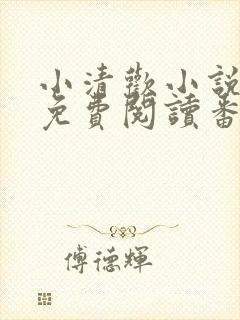 小清歡小說
免費閱讀番
傅德輝